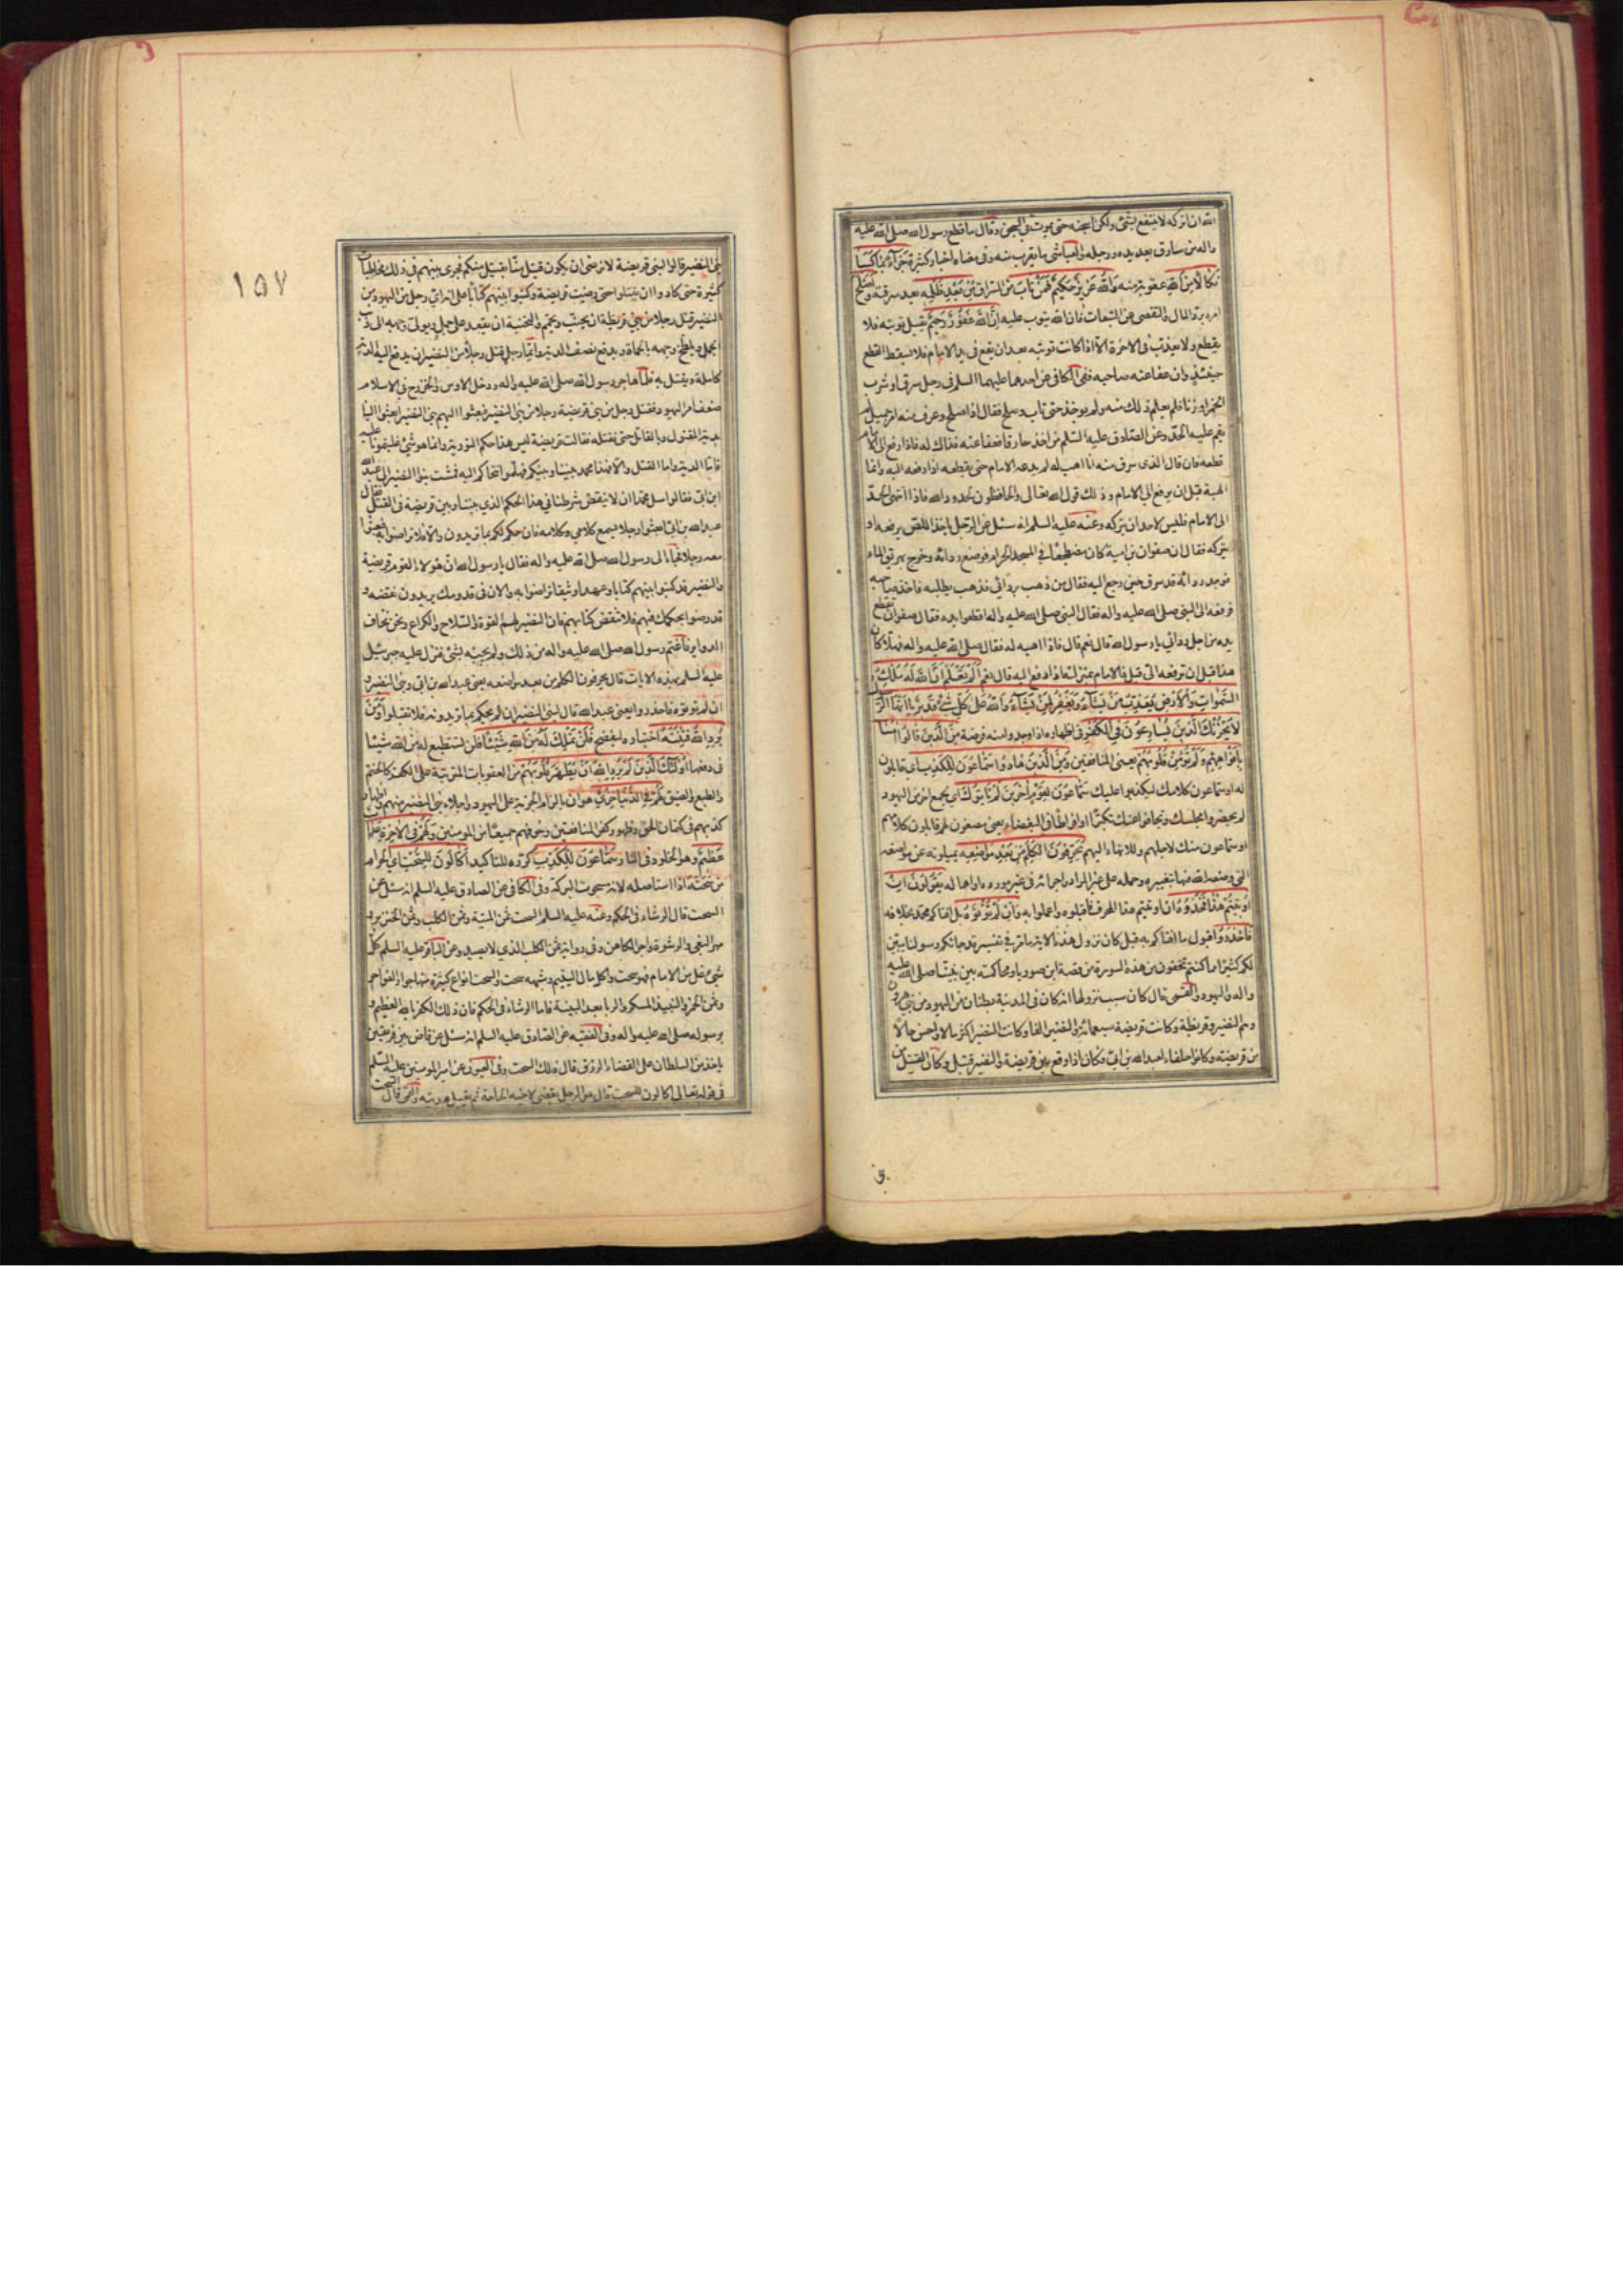 الله ان اتركه لا ينتفع بشئ ولكن اسجنه حتى يموت في السجن وقال ما قطع رسول الله صلى الله عليه
واله من سارق بعد يده ورجله والعياشى ما يقرب منه وفى معناه اخبار كثيرة جَزَآءً بِمَا كَسَبَا
نَكَالًا مِنَ اللهِ عقوبة منه وَاللهُ عَزِيزٌ حَكِيمٌ فَمَنْ تابَ من السراق مِنْ بَعْدِ ظُلْمِهِ بعد سرقته وَاَصْلَحَ
امره برد المال والتفصى عن التبعات فان الله يتوب عليه اِنَّ اللهَ غَفُورٌ رَحِيمٌ يقبل توبته فلا
يقطع ولا يعذب فى الاخرة الا اذا كانت توبته بعد ان يقع فى يد الامام فلا يسقط القطع
حينئذ وان عفا عنه صاحبه ففى الكافى عن احدهما عليهما السلم فى رجل سرق او شرب
الخمر او زنا فلم يعلم ذلك منه ولم يوخذ حتى تاب وصلح فقال اذا صلح وعرف منه امر جميل لم
يقم عليه الحد وعن الصادق عليه السلم من اخذ سارقا فعفا عنه فذاك له فاذا رفع الى الامام
قطعه فان قال الذى سرق منه انا اهب له لم يدعه الامام حتى يقطعه اذا رفعه اليه وانما
الهبة قبل ان يرفع الى الامام وذلك قول الله تعالى والحافظون لحدود الله فاذا انتهى الحد
الى الامام فليس لاحد ان يتركه وعنه عليه السلم انه سئل عن الرجل ياخذ اللص يرفعه او
يتركه فقال ان صفوان بن امية كان مضطجعا في المسجد الحرام فوضع ردائه وخرج يهريق الماء
فوجد ردائه قد سرق حين رجع اليه فقال من ذهب بردائي فذهب يطلبه فاخذ صاحبه
فرفعه الى النبى صلى الله عليه واله فقال النبى صلى الله عليه واله اقطعوا يده فقال صفوان تقطع
يده من اجل ردائي يا رسول الله قال نعم قال فانا اهبه له فقال صلى الله عليه واله فهلا كان
هذا قبل ان ترفعه الىّ قيل فالامام بمنزلته اذا رفع اليه قال نعم اَلَمْ تَعْلَمْ اَنَّ اللهَ لَهُ مُلْكُ
السَّمٰوَاتِ وَالْاَرْضِ يُعَذِّبُ مَنْ يَشَآءُ وَيَغْفِرُ لِمَنْ يَشَآءُ وَاللهُ عَلٰى كُلِّ شَىْءٍ قَدِيرٌ يَا اَيُّهَا الرَّسُولُ
لَا يَحْزُنْكَ الَّذِينَ يُسَارِعُونَ فِى الْكُفْرِ فى اظهاره اذا وجدوا منه فرصة مِنَ الَّذِينَ قَالُوا اٰمَنَّا
بِاَفْوَاهِهِمْ وَلَمْ تُؤْمِنْ قُلُوبُهُمْ يعنى المنافقين وَمِنَ الَّذِينَ هَادُوا سَمَّاعُونَ لِلْكَذِبِ اى قابلون
له او سماعون كلامك ليكذبوا عليك سَمَّاعُونَ لِقَوْمٍ اٰخَرِينَ لَمْ يَاْتُوكَ اى لجمع اخر من اليهود
لم يحضروا مجلسك وتجافوا عنك تكبرا او افراطا فى البغضاء يعنى مصغون لهم قابلون كلامهم
او سماعون منك لاجلهم وللانهاء اليهم يُحَرِّفُونَ الْكَلِمَ مِنْ بَعْدِ مَوَاضِعِهِ يميلونه عن مواضعه
التى وضعه الله فيها بتغييره وحمله على غير المراد واجرائه فى غير مورده او اهماله يَقُولُونَ اِنْ
اُوتِيتُمْ هٰذَا فَخُذُوهُ ان اوتيتم هذا المحرف فاقبلوه واعملوا به وَاِنْ لَمْ تُؤْتَوْهُ بل افتاكم محمد بخلافه
فَاحْذَرُوا قبول ما افتاكم به قيل كان نزول هذه الاية ما مر فى تفسير قد جاءكم رسولنا يبين
لكم كثيرا مما كنتم تخفون من هذه السورة من قصة ابن صوريا ومحاكمته بين نبينا صلى الله عليه
واله واليهود والقمى قال كان سبب نزولها انه كان فى المدينة بطنان من اليهود من بنى هرون
وهم النضير وقريظة وكانت قريضة سبعمائة والنضير الفا وكانت النضير اكثر مالا واحسن حالا
من قريضة وكانوا حلفاء لعبد الله بن ابىّ فكان اذا وقع بين قريضة والنضير قتيل وكان القتيل من
١٥٧
بنى النضير قالوا لبنى قريضة لا نرضى ان يكون قتيل منا بقتيل منكم فجرى بينهم فى ذلك مخاطبات
كثيرة حتى كادوا ان يقتتلوا حتى رضيت قريضة وكتبوا بينهم كتابا على انه اى رجل من اليهود من
النضير قتل رجلا من بنى قريظة ان يجنب ويحمم والتجنيه ان يقعد على جمل ويولى وجهه الى ذنب
الجمل ويلطخ وجهه بالحماة ويدفع نصف الدية وايما رجل قتل رجلا من النضير ان يدفع اليه الدية
كاملة ويقتل به فلما هاجر رسول الله صلى الله عليه واله ودخل الاوس والخزرج فى الاسلام
ضعف امر اليهود فقتل رجل من بنى قريضة رجلا من بنى النضير فبعثوا اليهم بنى النضير ابعثوا الينا
بدية المقتول وبالقاتل حتى نقتله فقالت قريضة ليس هذا حكم التورية وانما هو شئ غلبتمونا عليه
فاما الدية واما القتل والا فهذا محمد بيننا وبينكم فهلموا نتحاكم اليه فمشت بنو النضير الى عبد الله
ابن ابىّ فقالوا سل محمدا ان لا ينقض شرطنا فى هذا الحكم الذى بيننا وبين قريضة فى القتل فقال
عبد الله بن ابىّ ابعثوا رجلا يسمع كلامى وكلامه فان حكم لكم بما تريدون والا فلا ترضوا به فبعثوا
معه رجلا فجاء الى رسول الله صلى الله عليه واله فقال يا رسول الله ان هؤلاء القوم قريضة
والنضير قد كتبوا بينهم كتابا وعهدا وثيقا تراضوا به والان فى قدومك يريدون نقضه و
قد رضوا بحكمك فيهم فلا تنقض كتابهم فان النضير لهم القوة والسلاح والكراع ونحن نخاف
الدواير فاغتم رسول الله صلى الله عليه واله من ذلك ولم يجبه بشئ فنزل عليه جبرئيل
عليه السلم بهذه الايات قال يحرفون الكلم من بعد مواضعه يعنى عبد الله بن ابىّ وبنى النضير و
ان لم تؤتوه فاحذروا يعنى عبد الله قال لبنى النضير ان لم يحكم بما تريدونه فلا تقبلوا وَمَنْ
يُرِدِ اللهُ فِتْنَتَهُ اختياره ليفضح فَلَنْ تَمْلِكَ لَهُ مِنَ اللهِ شَيْئًا فلن تستطيع له من الله شيئا
فى دفعها اُولٰئِكَ الَّذِينَ لَمْ يُرِدِ اللهُ اَنْ يُطَهِّرَ قُلُوبَهُمْ من العقوبات المترتبة على الكفر كالختم
والطبع والضيق لَهُمْ فِى الدُّنْيَا خِزْىٌ هوان بالزام الجزية على اليهود واجلاء بنى النضير منهم واظهار
كذبهم فى كتمان الحق وظهور كفر المنافقين وخوفهم جميعا من المومنين وَلَهُمْ فِى الْاٰخِرَةِ عَذَابٌ
عَظِيمٌ وهو الخلود فى النار سَمَّاعُونَ لِلْكَذِبِ كرره للتاكيد اَكَّالُونَ لِلسُّحْتِ اى الحرام
من سحته اذا استاصله لانه مسحوت البركة وفى الكافى عن الصادق عليه السلم انه سئل عن
السحت قال الرشاء فى الحكم وعنه عليه السلم السحت ثمن الميتة وثمن الكلب وثمن الخنزير و
مهر البغى والرشوة واجر الكاهن وفى رواية ثمن الكلب الذى لا يصيد وعن الباقر عليه السلم كل
شئ غل من الامام فهو سحت واكل مال اليتيم وشبهه سحت والسحت انواع كثيرة منها اجور الفواجر
وثمن الخمر والنبيذ المسكر والربا بعد البينة فاما الرشاء فى الحكم فان ذلك الكفر بالله العظيم و
برسوله صلى الله عليه واله وفى الفقيه عن الصادق عليه السلم انه سئل عن قاض بين فريقين
ياخذ من السلطان على القضاء الرزق قال ذلك السحت وفى العيون عن امير المومنين عليه السلم
فى قوله تعالى اكالون للسحت قال هو الرجل يقضى لاخيه الحاجة ثم يقبل هديته